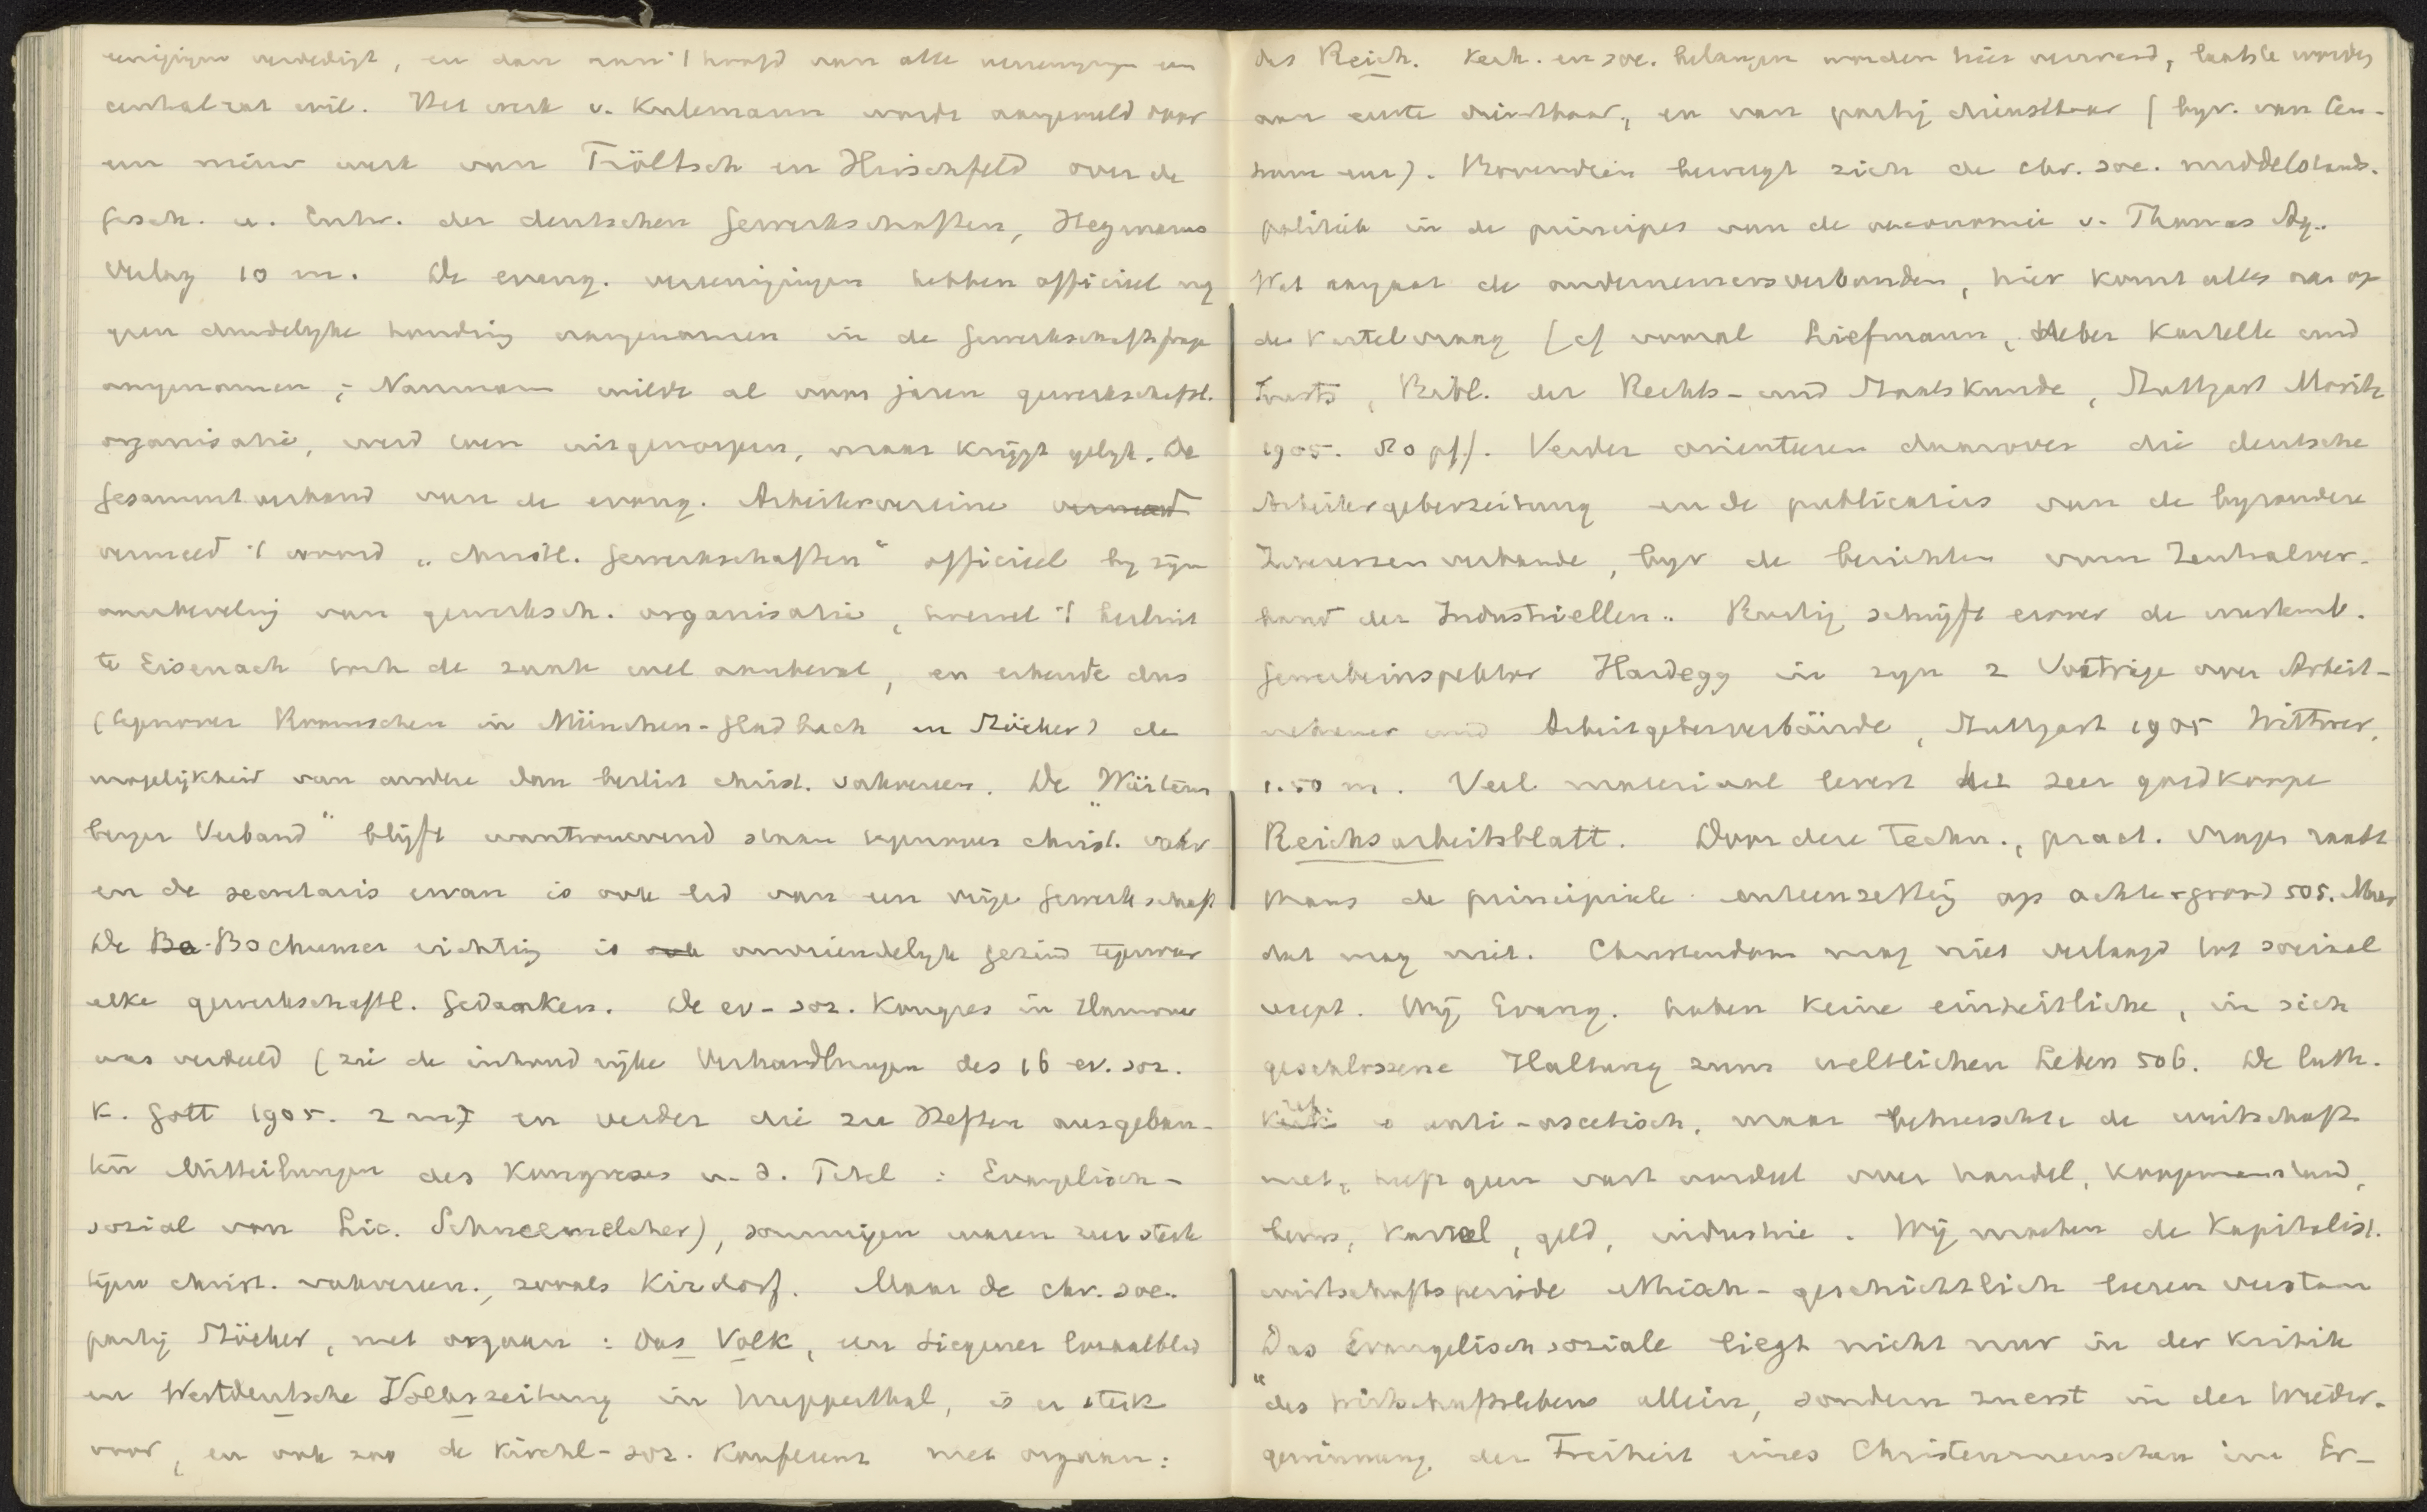 verdedigt, en dan aan 't hoofd van alle vereenigingen een
centralraat wil. Het werk v. Kulemann wordt aangevuld door
een nieuw werk van Tröltsch en Hirschfeld over de
Gesch. u. Entw. der deutschen Gewerkschaften, Heymanns
Verlag 10 m. De evang. vereenigingen hebben officieel nog
geen duidelyke houding aangenomen in de Gewerkschaftsfrage
angenomen; Naumann wilde al voor jaren gewerkschaftl.
organisatie, werd toen uitgeworpen, maar krijgt gelijk. De
Gesammtverband van de evang. Arbeitervereine vermeed
vermeed 't woord „christl. Gewerkschaften“ officieel by zyn
aanbeveling van gewerksch. organisatie, hoewel 't besluit
te Eisenach toch de zaak wel aanbeval, en erkende dus
(tegenover Roomschen in München-Gladbach en Stöcker) de
mogelijkheid van andere dan beslist christ. vakvereen. De „Würtem
berger Verband“ blijft wantrouwend staan tegenover christ. vakv
en de secretaris ervan is ook lid van een vrije Gewerkschaft
De Be-Bochumer richting is ook onvriendelyk gezind tegenover
elke gewerkschaftl. Gedanken. De ev-soz. Kongres in Hannover
was verdeeld (zie de inhoudrijke Verhandlungen des 16 ev. soz.
K. Gött 1905. 2 m) en verder die zu Heften ausgebau-
ten Mitteilungen des Kongresses u. d. Titel: Evangelisch-
sozial von Lic. Schneemelcher), sommigen waren zeer sterk
tegen christ. vakvereen., zooals Kirdorf. Maar de chr. soc.
party Stöcker, met orgaan: Das Volk, een Siegener lokaalblad
en Westdeutsche Volkszeitung in Wupperthal, is er sterk
voor, en ook zoo de Kirchl-soz. Konferenz met orgaan:
das Reich. Kerk. en soc. belangen worden hier verward, laatste worden
aan eerste dienstbaar, en van partij dienstbaar (byv. van Cen-
trum eer). Bovendien beweegt zich de chr. soc. middelstands-
politiek in de principes van de oeconomie v. Thomas Aq..
Wat aangaat de ondernemersverbanden, hier komt alles aan op
de Kartelvraag (cf vooral Liefmann, Ueber Kartelle und
Trusts, Bibl. der Rechts- und Staatskunde, Stuttgart Moritz
1905. 50 pf). Verder orienteren daarover die deutsche
Arbeitergeberzeitung en de publicaties van de byzondere
Interessenverbande, byv de berichten vom Zentralver-
band der Industriellen.. Rustig schrijft erover de
Gewerbeinspektor Hardegg in zyn 2 Vorträge over Arbeit-
nehmer und Arbeitgeberverbände, Stuttgart 1905 Wittwer,
1.50 m. Veel materiaal levert het zeer goedkoope
Reichsarbeitsblatt. Door deze techn., pract. vragen raakt
thans de principiele uiteenzetting op achtergrond 505. Maar
dat mag niet. Christendom mag niet verlaagd tot sociaal
recept. Wij Evang. haben keine einheitliche, in sich
geschlossene Haltung zum weltlichen Leben 506. De luth.
anti-ascetisch, maar beheerschte de wirtschaft
niet, heeft geen vast oordeel over handel, koopmanstand,
beurs, kartel, geld, industrie. Wij moeten de kapitalist.
wirtschaftsperiode ethisch-geschichtlich leeren verstaan
Das Evangelisch soziale liegt nicht nur in der Kritik
„des Wirtschaftslebens allein, sondern zuerst in der Wieder-
gewinnung der Freiheit eines Christenmenschen im Er-